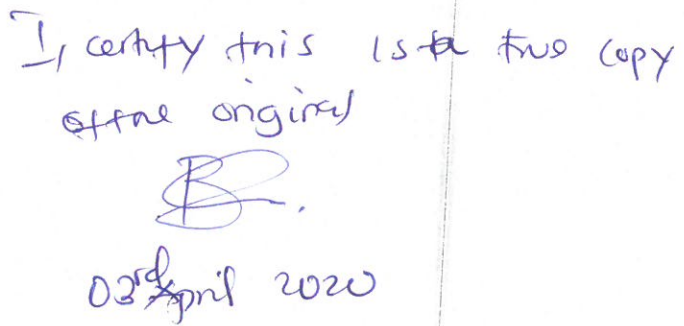 I, certify this is a true copy
of the original
03rd April 2020